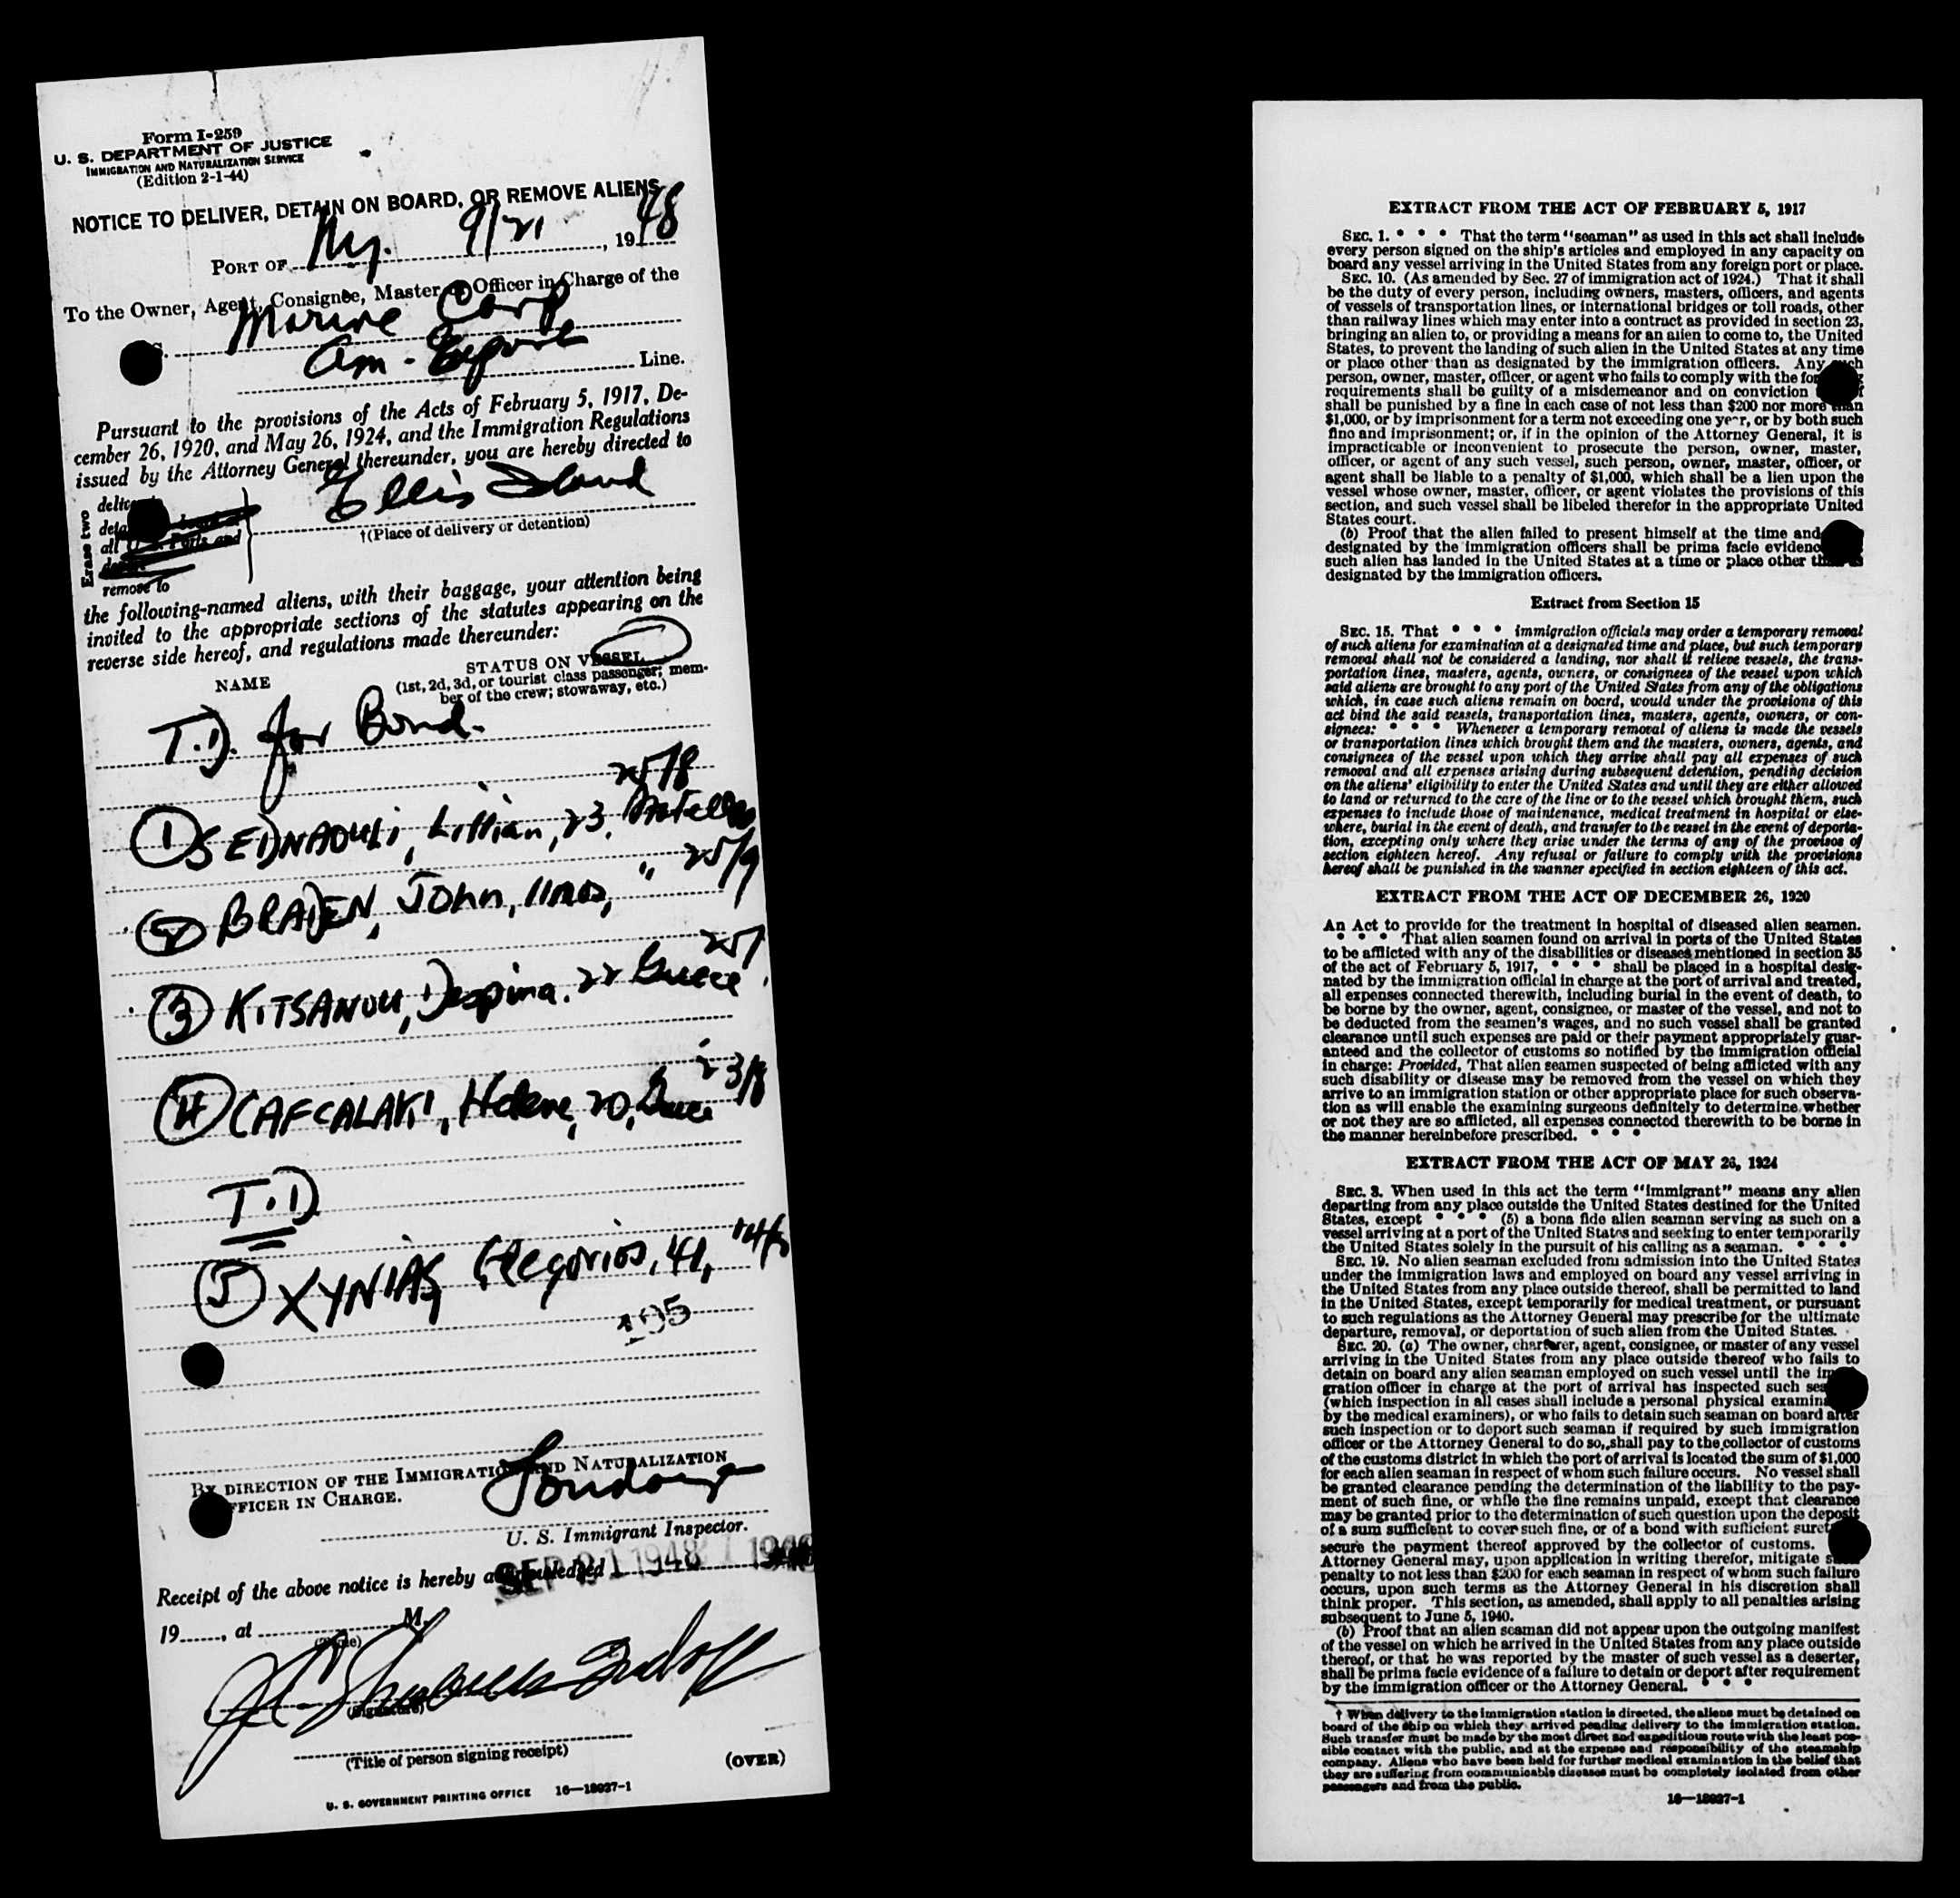 Form I-259
U. S. DEPARTMENT OF JUSTICE
IMMIGRATION AND NATURALIZATION SERVICE
(Edition 2-1-44)
NOTICE TO DELIVER, DETAIN ON BOARD, OR REMOVE ALIENS
PORT OF N.Y. 9/21, 1948
To the Owner, Agent, Consignee, Master or Officer in Charge of the
Marine Carp
Am-Export Line.
Pursuant to the provisions of the Acts of February 5, 1917, De-
cember 26, 1920, and May 26, 1924, and the Immigration Regulations
issued by the Attorney General thereunder, you are hereby directed to
Erase two
Ellis Island
all U. S. Ports and
remove to
†(Place of delivery or detention)
the following-named aliens, with their baggage, your attention being
invited to the appropriate sections of the statutes appearing on the
reverse side hereof, and regulations made thereunder:
NAME
STATUS ON VESSEL
(1st, 2d, 3d, or tourist class passenger; mem-
ber of the crew; stowaway, etc.)
T.D. for Bond.
25/8
1 SEDNAOULI, Lillian, 23,
25/9
2 BRADEN, John, 11mos, "
25/
3 KITSANOU, Despina. 22 Greece
23/8
4 CAFCALAKI, Helene, 20, Greece
T.D
5 XYNIAS, Gregorios, 41, 14/
195
BY DIRECTION OF THE IMMIGRATION AND NATURALIZATION
OFFICER IN CHARGE.
U. S. Immigrant Inspector.
Receipt of the above notice is hereby acknowledged SEP 21 1948
19 , at M.
(Time)
(Signature)
(Title of person signing receipt)
(OVER)
U. S. GOVERNMENT PRINTING OFFICE 16—18927-1
EXTRACT FROM THE ACT OF FEBRUARY 5, 1917
SEC. 1. * * * That the term "seaman" as used in this act shall include
every person signed on the ship's articles and employed in any capacity on
board any vessel arriving in the United States from any foreign port or place.
SEC. 10. (As amended by Sec. 27 of immigration act of 1924.) That it shall
be the duty of every person, including owners, masters, officers, and agents
of vessels of transportation lines, or international bridges or toll roads, other
than railway lines which may enter into a contract as provided in section 23,
bringing an alien to, or providing a means for an alien to come to, the United
States, to prevent the landing of such alien in the United States at any time
or place other than as designated by the immigration officers. Any such
person, owner, master, officer, or agent who fails to comply with the
requirements shall be guilty of a misdemeanor and on conviction
shall be punished by a fine in each case of not less than $200 nor more than
$1,000, or by imprisonment for a term not exceeding one year, or by both such
fine and imprisonment; or, if in the opinion of the Attorney General, it is
impracticable or inconvenient to prosecute the person, owner, master,
officer, or agent of any such vessel, such person, owner, master, officer, or
agent shall be liable to a penalty of $1,000, which shall be a lien upon the
vessel whose owner, master, officer, or agent violates the provisions of this
section, and such vessel shall be libeled therefor in the appropriate United
States court.
(b) Proof that the alien failed to present himself at the time and
designated by the immigration officers shall be prima facie evidence
such alien has landed in the United States at a time or place other than as
designated by the immigration officers.
Extract from Section 15
SEC. 15. That * * * immigration officials may order a temporary removal
of such aliens for examination at a designated time and place, but such temporary
removal shall not be considered a landing, nor shall it relieve vessels, the trans-
portation lines, masters, agents, owners, or consignees of the vessel upon which
said aliens are brought to any port of the United States from any of the obligations
which, in case such aliens remain on board, would under the provisions of this
act bind the said vessels, transportation lines, masters, agents, owners, or con-
signees: * * * Whenever a temporary removal of aliens is made the vessels
or transportation lines which brought them and the masters, owners, agents, and
consignees of the vessel upon which they arrive shall pay all expenses of such
removal and all expenses arising during subsequent detention, pending decision
on the aliens' eligibility to enter the United States and until they are either allowed
to land or returned to the care of the line or to the vessel which brought them, such
expenses to include those of maintenance, medical treatment in hospital or else-
where, burial in the event of death, and transfer to the vessel in the event of deporta-
tion, excepting only where they arise under the terms of any of the provisos of
section eighteen hereof. Any refusal or failure to comply with the provisions
hereof shall be punished in the manner specified in section eighteen of this act.
EXTRACT FROM THE ACT OF DECEMBER 26, 1920
An Act to provide for the treatment in hospital of diseased alien seamen.
* * * That alien seamen found on arrival in ports of the United States
to be afflicted with any of the disabilities or diseases mentioned in section 35
of the act of February 5, 1917, * * * shall be placed in a hospital desig-
nated by the immigration official in charge at the port of arrival and treated,
all expenses connected therewith, including burial in the event of death, to
be borne by the owner, agent, consignee, or master of the vessel, and not to
be deducted from the seamen's wages, and no such vessel shall be granted
clearance until such expenses are paid or their payment appropriately guar-
anteed and the collector of customs so notified by the immigration official
in charge: Provided, That alien seamen suspected of being afflicted with any
such disability or disease may be removed from the vessel on which they
arrive to an immigration station or other appropriate place for such observa-
tion as will enable the examining surgeons definitely to determine whether
or not they are so afflicted, all expenses connected therewith to be borne in
the manner hereinbefore prescribed. * * *
EXTRACT FROM THE ACT OF MAY 26, 1924
SEC. 3. When used in this act the term "immigrant" means any alien
departing from any place outside the United States destined for the United
States, except * * * (5) a bona fide alien seaman serving as such on a
vessel arriving at a port of the United States and seeking to enter temporarily
the United States solely in the pursuit of his calling as a seaman. * * *
SEC. 19. No alien seaman excluded from admission into the United States
under the immigration laws and employed on board any vessel arriving in
the United States from any place outside thereof, shall be permitted to land
in the United States, except temporarily for medical treatment, or pursuant
to such regulations as the Attorney General may prescribe for the ultimate
departure, removal, or deportation of such alien from the United States.
SEC. 20. (a) The owner, charterer, agent, consignee, or master of any vessel
arriving in the United States from any place outside thereof who fails to
detain on board any alien seaman employed on such vessel until the immi-
gration officer in charge at the port of arrival has inspected such
(which inspection in all cases shall include a personal physical
by the medical examiners), or who fails to detain such seaman on board after
such inspection or to deport such seaman if required by such immigration
officer or the Attorney General to do so, shall pay to the collector of customs
of the customs district in which the port of arrival is located the sum of $1,000
for each alien seaman in respect of whom such failure occurs. No vessel shall
be granted clearance pending the determination of the liability to the pay-
ment of such fine, or while the fine remains unpaid, except that clearance
may be granted prior to the determination of such question upon the deposit
of a sum sufficient to cover such fine, or of a bond with sufficient
secure the payment thereof approved by the collector of customs.
Attorney General may, upon application in writing therefor, mitigate such
penalty to not less than $200 for each seaman in respect of whom such failure
occurs, upon such terms as the Attorney General in his discretion shall
think proper. This section, as amended, shall apply to all penalties arising
subsequent to June 5, 1940.
(b) Proof that an alien seaman did not appear upon the outgoing manifest
of the vessel on which he arrived in the United States from any place outside
thereof, or that he was reported by the master of such vessel as a deserter,
shall be prima facie evidence of a failure to detain or deport after requirement
by the immigration officer or the Attorney General. * * *
† When delivery to the immigration station is directed, the aliens must be detained on
board of the ship on which they arrived pending delivery to the immigration station.
Such transfer must be made by the most direct and expeditious route with the least pos-
sible contact with the public, and at the expense and responsibility of the steamship
company. Aliens who have been held for further medical examination in the belief that
they are suffering from communicable diseases must be completely isolated from other
passengers and from the public.
16—18927-1